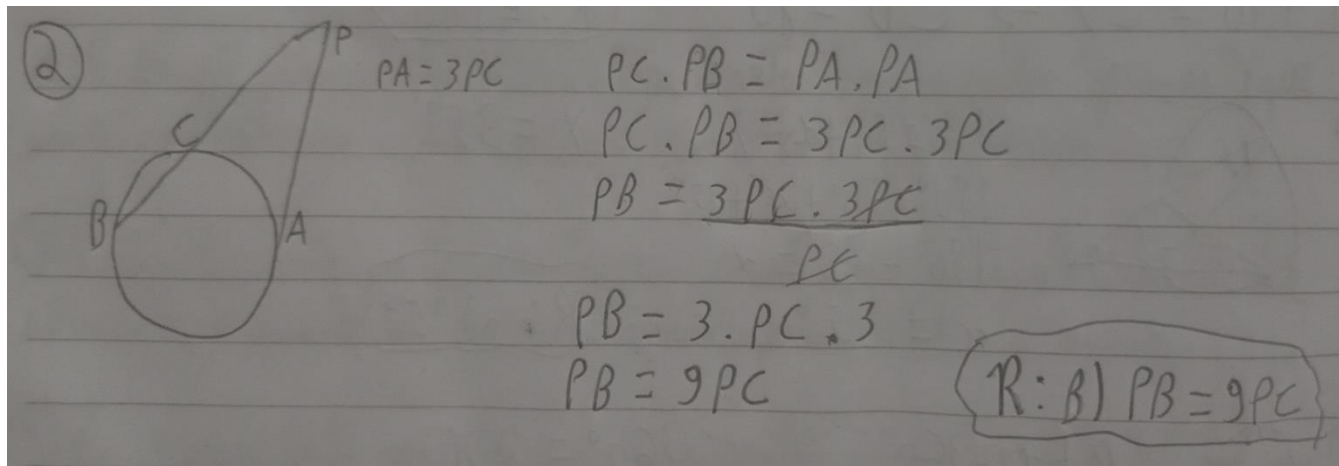 2
P
PA = 3PC
C
B
A
PC . PB = PA . PA
PC . PB = 3PC . 3PC
PB = 3PC . 3PC
PC
PB = 3 . PC . 3
PB = 9PC
R: B) PB = 9PC